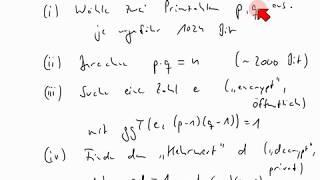 (i) Wähle zwei Primzahlen p, q aus.
je ungefähr 1024 Bit
(ii) Berechne p·q = n (~ 2000 Bit)
(iii) Suche eine Zahl e („encrypt",
öffentlich)
mit ggT(e, (p-1)(q-1)) = 1
(iv) Finde den „Kehrwert" d („decrypt",
privat)